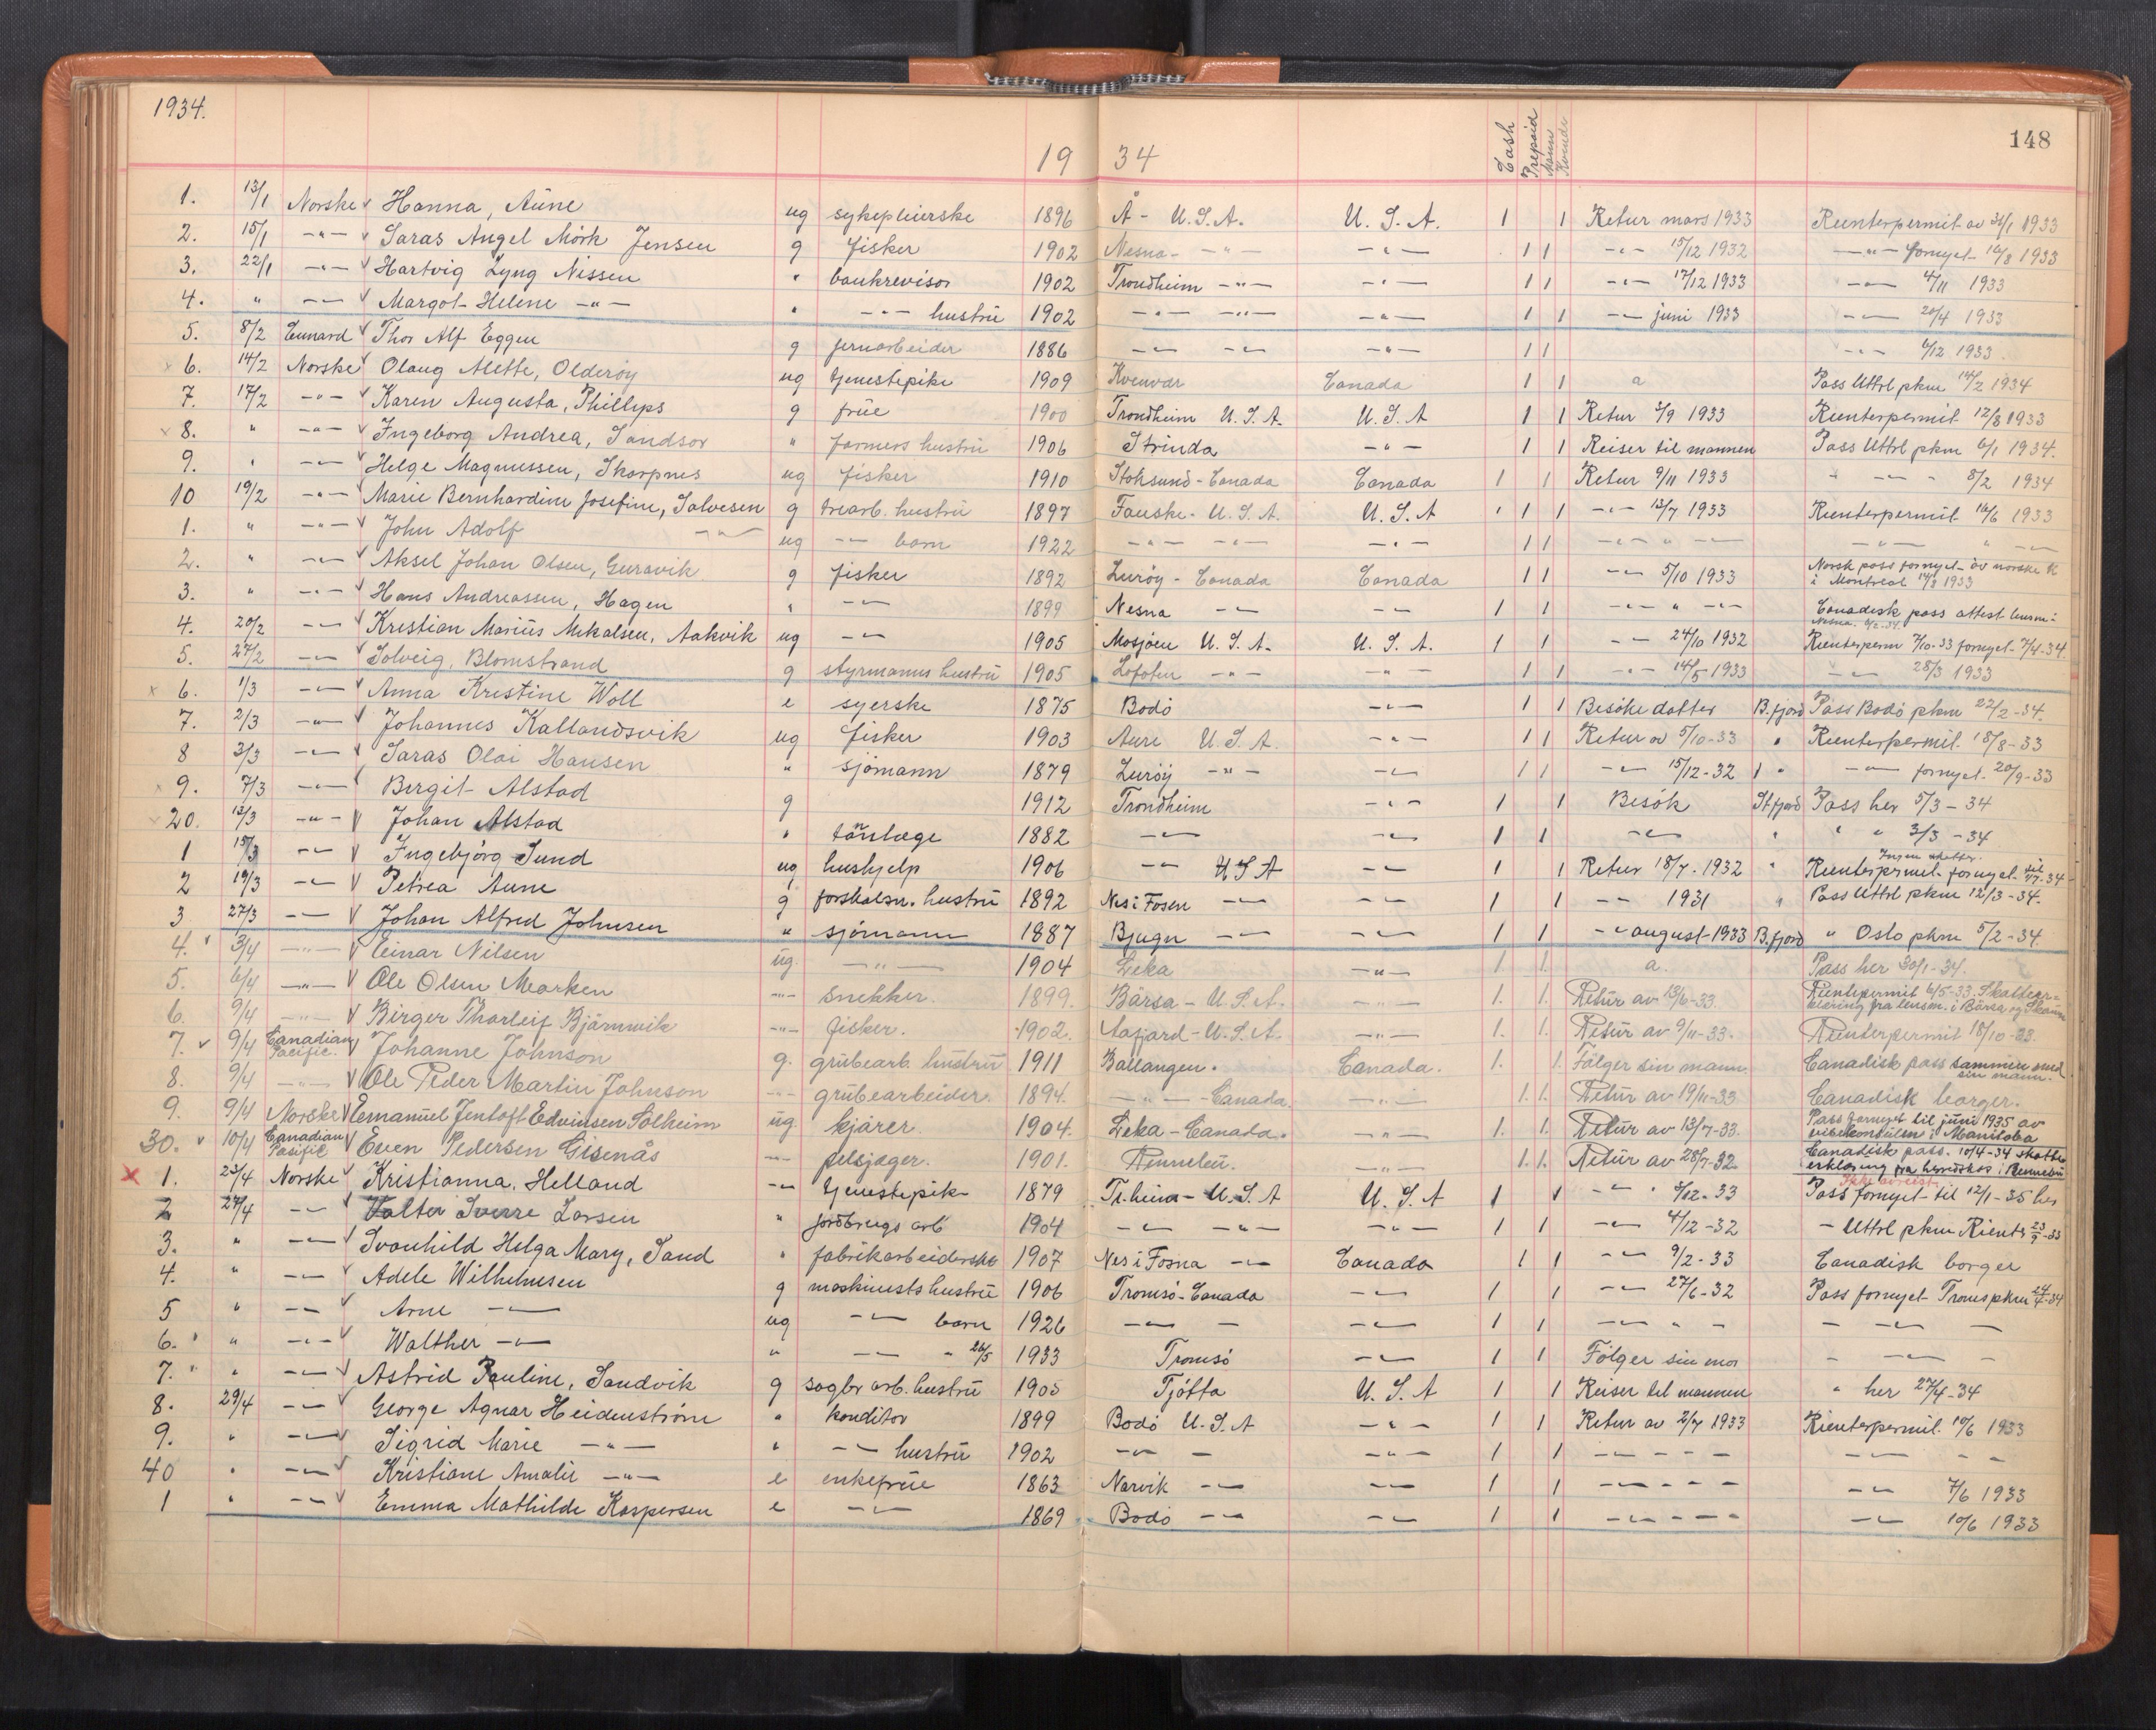 1934.
148
19 34 Cash Prepaid Mann Kvinde
1. 13/1 Norske Hanna, Aune ug sykepleierske 1896 Å - U.S.A. U.S.A. 1 1 Retur mars 1933 Reenterpermit av 31/1 1933
2. 15/1 -"- Saras Angel Mörk Jensen g fisker 1902 Nesna- -"- -"- 1 1 -"- 15/12 1932 -"- fornyet 16/8 1933
3. 22/1 -"- Hartvig Lyng Nissen " bankrevisor 1902 Trondheim -"- -"- 1 1 -"- 17/12 1933 -"- 4/11 1933
4. " -"- Margot Helene -"- " -"- hustru 1902 -"- -"- -"- 1 1 -"- juni 1933 -"- 20/4 1933
5. 8/2 Cunard Thor Alf Eggen g jernarbeider 1886 -"- -"- -"- 1 1 -"- 6/12 1933.
x 6. 14/2 Norske Olaug Alette, Olderöy ug tjenestepike 1909 Kvenvær Canada 1 1 a Pass Uttrl pkm 14/2 1934
7. 17/2 -"- Karen Augusta, Phillips g frue 1900 Trondheim U.S.A. U.S.A 1 1 Retur 3/9 1933 Reenterpermit 12/8 1933
x 8. " -"- Ingeborg Andrea, Sandsor " farmers hustru 1906 Strinda -"- 1 1 Reiser til mannen Pass Uttrl pkm 6/1 1934.
9. " -"- Helge Magnussen, Skarpnes ug fisker 1910 Stoksund - Canada Canada 1 1 Retur 9/11 1933 " -"- " 8/2 1934
10 19/2 -"- Marie Bernhardine Josefine, Salvesen g trearb. hustru 1897 Fauske - U.S.A. U.S.A 1 1 -"- 13/7 1933 Reenterpermit 16/6 1933
1. " -"- John Adolf -"- ug -"- barn 1922 -"- -"- -"- 1 1 -"- " -"- -"- " -"-
2. " -"- Aksel Johan Olsen, Guravik g fisker 1892 Luröy - Canada Canada 1 1 -"- 5/10 1933 Norsk pass fornyet av norske K i Montreal 14/8 1933
3. " -"- Hans Andreassen, Hagen " -"- 1899 Nesna -"- -"- 1 1 -"- " -"- Canadisk pass attest lensm i Nesna 6/2-34.
4. 20/2 -"- Kristian Marius Mikalsen, Aakvik ug -"- 1905 Mosjöen U.S.A. U.S.A. 1 1 -"- 24/10 1932 Reenterperm 7/10-33 fornyet 7/4-34.
5. 27/2 -"- Solveig, Blomstrand g styrmanns hustru 1905 Lofoten -"- -"- 1 1 -"- 14/5-1933 -"- 28/3 1933
x 6. 1/3 -"- Anna Kristine Woll e syerske 1875 Bodö -"- 1 1 Besöke datter B.fjord Pass Bodö pkm 22/2-34.
7. 2/3 -"- Johannes Kallandsvik ug fisker 1903 Aure U.S.A. -"- 1 1 Retur av 5/10-33 " Reenterpermit 18/8-33
8 3/3 -"- Saras Olai Hansen " sjömann 1879 Luröy -"- -"- 1 1 -"- 15/12-32 " -"- fornyet 20/9-33
x 9. 7/3 -"- Bergit Alstad g 1912 Trondheim -"- 1 1 Besök St.fjord Pass her 5/3-34
20. 13/3 -"- Johan Alstad " tannlæge 1882 -"- -"- 1 1 -"- " " " 3/3-34
1 15/3 -"- Ingebjörg Sund ug hushjelp 1906 -"- U S A -"- 1 1 Retur 18/7. 1932 " Ingen skatter. Reenterpermit fornyet til 34
2 19/3 -"- Petrea Aune g forskalsn. hustru 1892 Nes i Fosen -"- -"- 1 1 -"- 1931 " Pass Uttrl pkm 12/3-34.
3 27/3 -"- Johan Alfred Johnsen " sjömann 1887 Bjugn -"- -"- 1 1 -"- august-1933 B.fjord " Oslo pkm 5/2-34.
4. 3/4 -"- Einar Nilsen ug. -"- 1904 Leka -"- 1. 1. a. Pass her 30/1-34.
5. 6/4 -"- Ole Olsen Marken -"- snekker. 1899. Børsa - U.S.A. -"- 1. 1. Retur av 13/6-33. Reentrpermit 6/5-33. Skatteer- klæring fra lensm. i Børsa og Skaun
6. 9/4 -"- Birger Thorleif Bjørnvik -"- fisker. 1902. Aafjord - U.S.A. -"- 1. 1. Retur av 9/11-33. Reenterpermit 18/10-33.
7. 9/4 Canadian Pacific. Johanne Johnson g. grubearb. hustru 1911 Ballangen. Canada. 1. 1. Fölger sin mann. Canadisk pass sammen med sin mann.
8. 9/4 -"- Ole Peder Martin Johnson -"- grubearbeider. 1894. -"- - Canada. -"- 1. 1. Retur av 19/11-33 Canadisk borger.
9. 9/4 Norske Emanuel Jentoft Edvinsen Solheim ug. kjører. 1904. Leka - Canada. -"- 1. 1. Retur av 13/7-33. Pass fornyet til juni 1935 av visekonsulen i Manitoba
30. 10/4 Canadian Pasific Even Pedersen Gisenås -"- pelsjæger. 1901. Rennebu. -"- 1. 1. Retur av 28/7-32. Canadisk pass. 10/4-34 skatte- erklæring fra herredskas. i Rennebu
x 1. 23/4 Norske Kristianna. Helland -"- tjenestepik- 1879 Tr.heim - U.S.A U.S.A 1 1 -"- " 3/12-33 Ikke avreist Pass fornyet til 12/1-35 her
2 27/4 -"- Valter Sverre Larsen " jordbrugs arb 1904 -"- -"- -"- 1 1 -"- 4/12-32 - Uttrl pkm Rientr 23/9-33
3. " -"- Svanhild Helga Mary, Sand " fabrikarbeiderske 1907 Nes i Fosna -"- Canada 1 1 -"- 9/2-33 Canadisk borger
4. " -"- Adele Wilhelmsen g maskinists hustru 1906 Tromsö - Canada -"- 1 1 -"- 27/6-32 Pass fornyet Troms pkm 24/4-34
5 " -"- Arne -"- ug -"- barn 1926 -"- - -"- 1 1 -"- " - - -"- -
6. " -"- Walther -"- " -"- " 26/5 1933 Tromsö -"- 1 1 Fölger sin mor - -"- -
7. " -"- Astrid Pauline, Sandvik g sagbr arb. hustru 1905 Tjötta U.S.A 1 1 Reiser til mannen " her 27/4-34
8. 29/4 -"- George Agnar Heidenström " konditor 1899 Bodö U.S.A -"- 1 1 Retur av 2/7 1933 Reenterpermit 10/6 1933
9. " -"- Sigrid Marie -"- " -"- hustru 1902 -"- - -"- 1 1 -"- - - - -"- - -
40 " -"- Kristiane Amalie -"- e enkefrue 1863 Narvik -"- -"- 1 1 -"- - - - -"- 7/6 1933
1 " -"- Emma Mathilde Kaspersen e -"- 1869 Bodö -"- -"- 1 1 -"- - - - -"- 10/6 1933